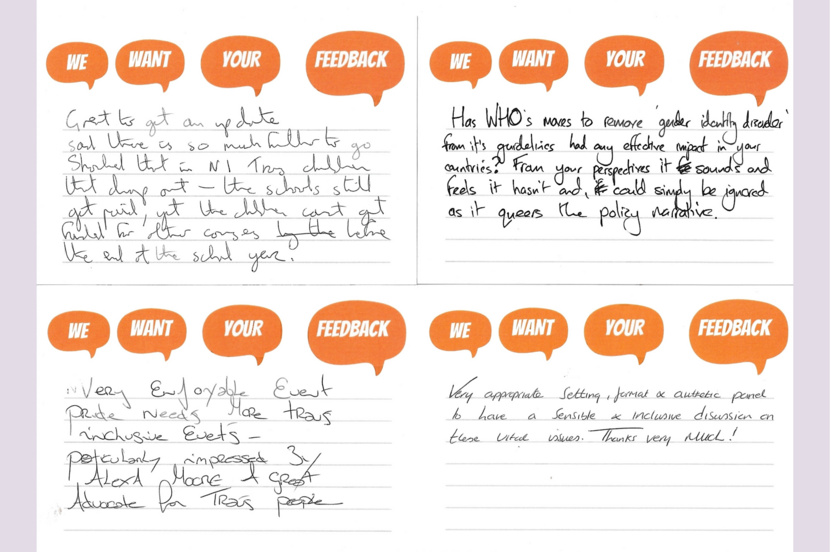 WE WANT YOUR FEEDBACK
Great to get an update
sad there is so much further to go
Shocked that in NI Trans children
that drop out – the schools still
get paid, yet the children can't get
funded for other courses by the before
the end of the school year.
WE WANT YOUR FEEDBACK
Has WHO's moves to remove 'gender identity disorder'
from it's guidelines had any effective impact in your
countries? From your perspectives it sounds and
feels it hasn't and, could simply be ignored
as it queers the policy narrative.
WE WANT YOUR FEEDBACK
Very Enjoyable Event
pride needs More trans
inclusive Evets –
particularly impressed By
Alexa Moore A great
Advocate for Trans people
WE WANT YOUR FEEDBACK
Very appropriate setting, format & authetic panel
to have a sensible & inclusive discussion on
these vital issues. Thanks very much!